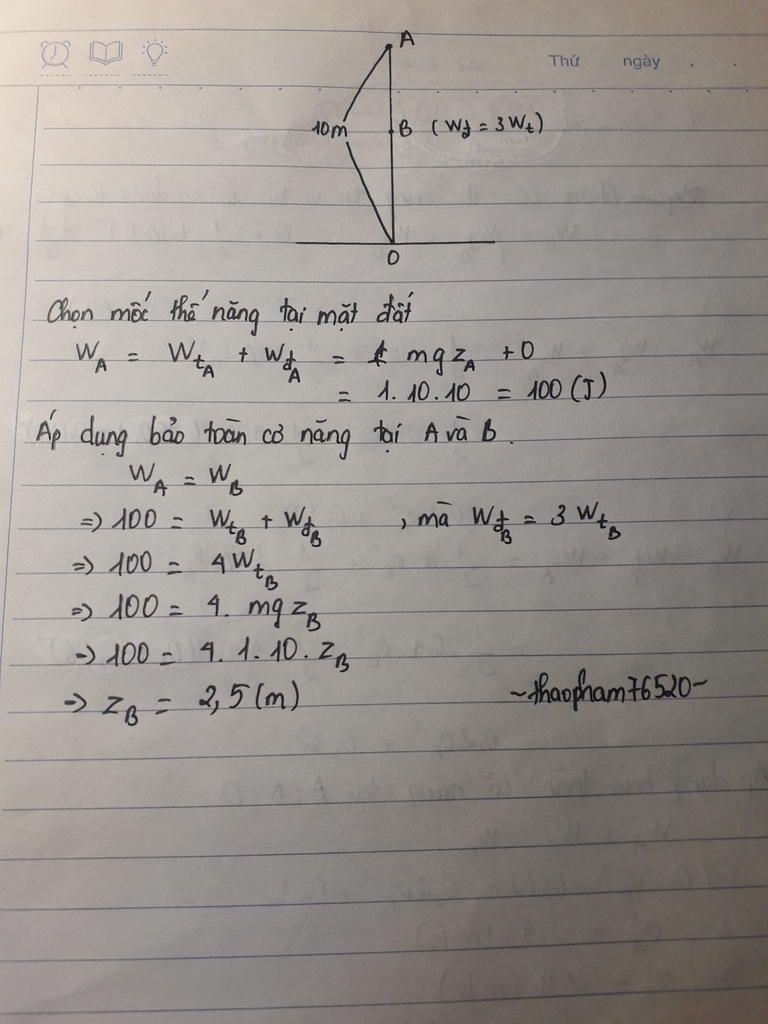 Thứ ngày . .
A
10m B (Wđ = 3Wt)
O
Chọn mốc thế năng tại mặt đất
W_A = W_tA + W_đA = mgz_A + 0
= 1.10.10 = 100 (J)
Áp dụng bảo toàn cơ năng tại A và B.
W_A = W_B
=> 100 = W_tB + W_đB , mà W_đB = 3 W_tB
=> 100 = 4W_tB
=> 100 = 4. mgz_B
-> 100 = 4.1.10.z_B
-> z_B = 2,5 (m)
~thaopham76520~